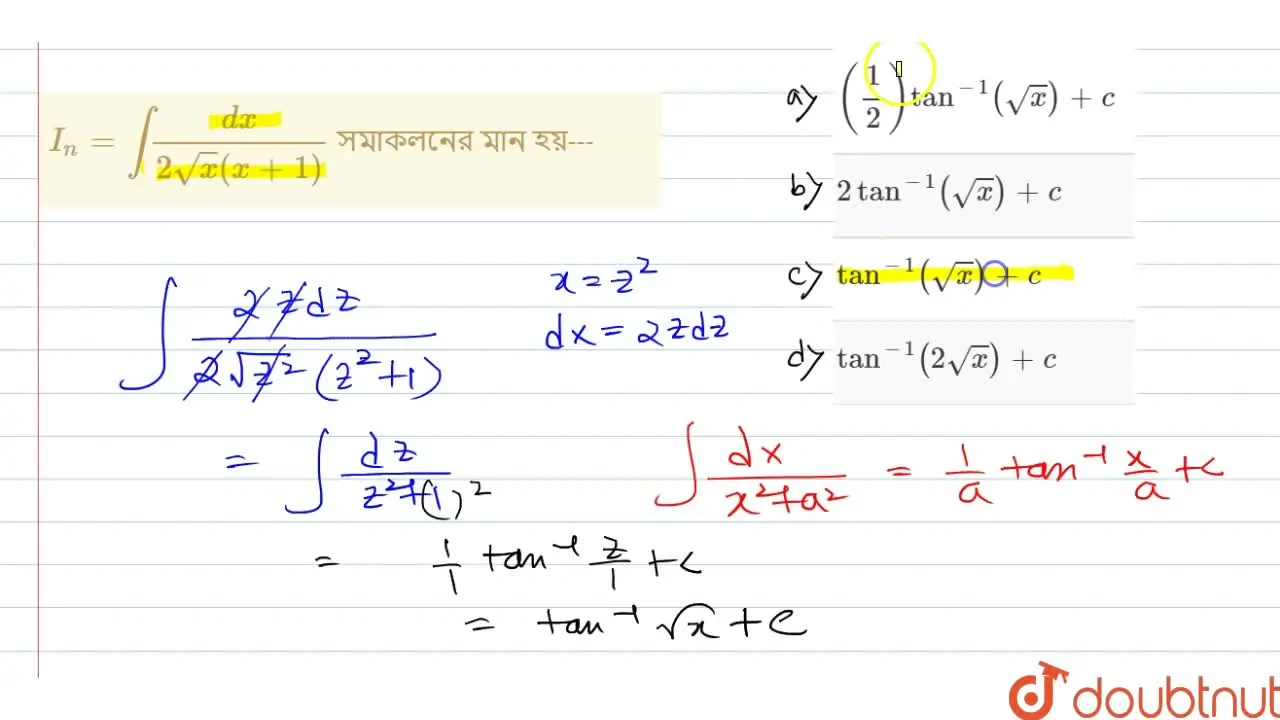 I_n = ∫ dx / 2√x(x + 1) সমাকলনের মান হয়---
a) (1/2) tan⁻¹(√x) + c
b) 2 tan⁻¹(√x) + c
c) tan⁻¹(√x) + c
d) tan⁻¹(2√x) + c
∫ 2 z dz / 2√z² (z² + 1)
x = z²
dx = 2z dz
= ∫ dz / z² + (1)²
∫ dx / x² + a² = 1/a tan⁻¹ x/a + c
= 1/1 tan⁻¹ z/1 + c
= tan⁻¹ √x + c
doubtnut